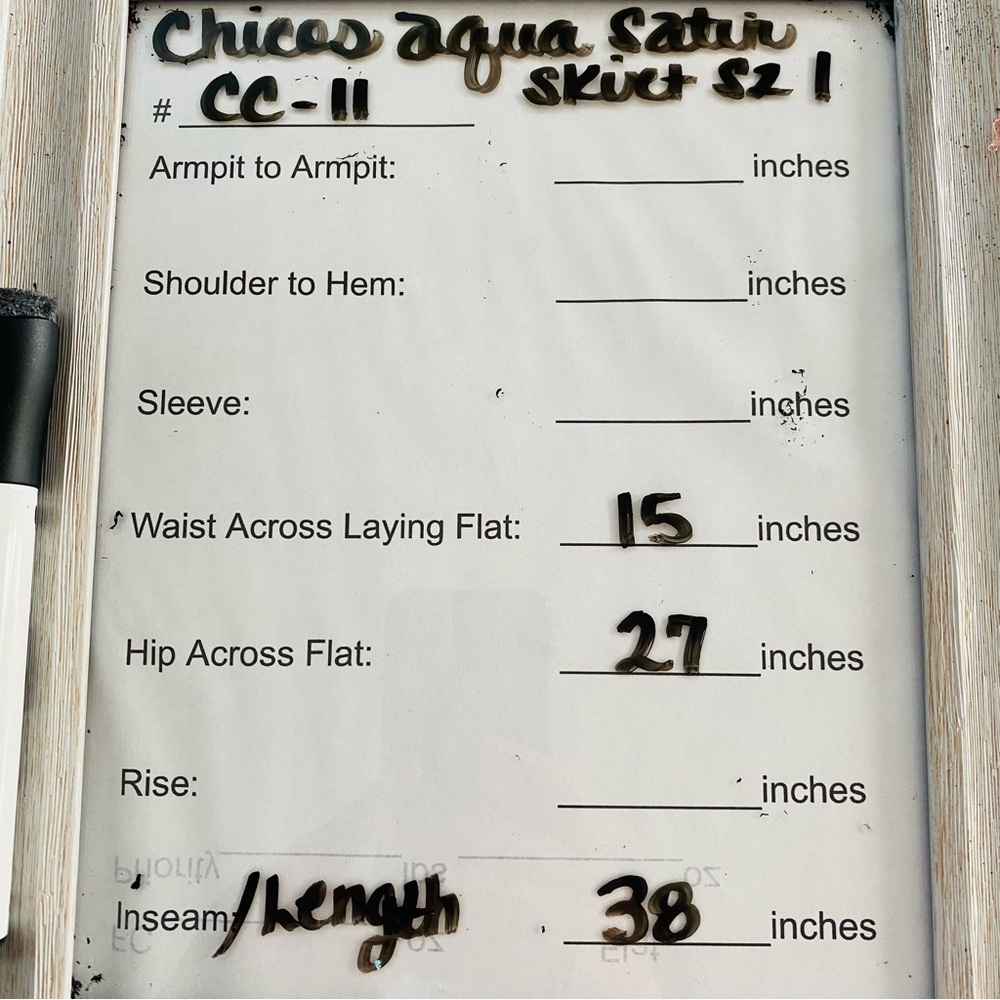 Chicos aqua Satin
Skirt SZ 1
# CC-11
Armpit to Armpit: ____ inches
Shoulder to Hem: ____ inches
Sleeve: ____ inches
Waist Across Laying Flat: 15 inches
Hip Across Flat: 27 inches
Rise: ____ inches
Priority ____ lbs ____ oz
Inseam: /Length 38 inches
FC oz Flat